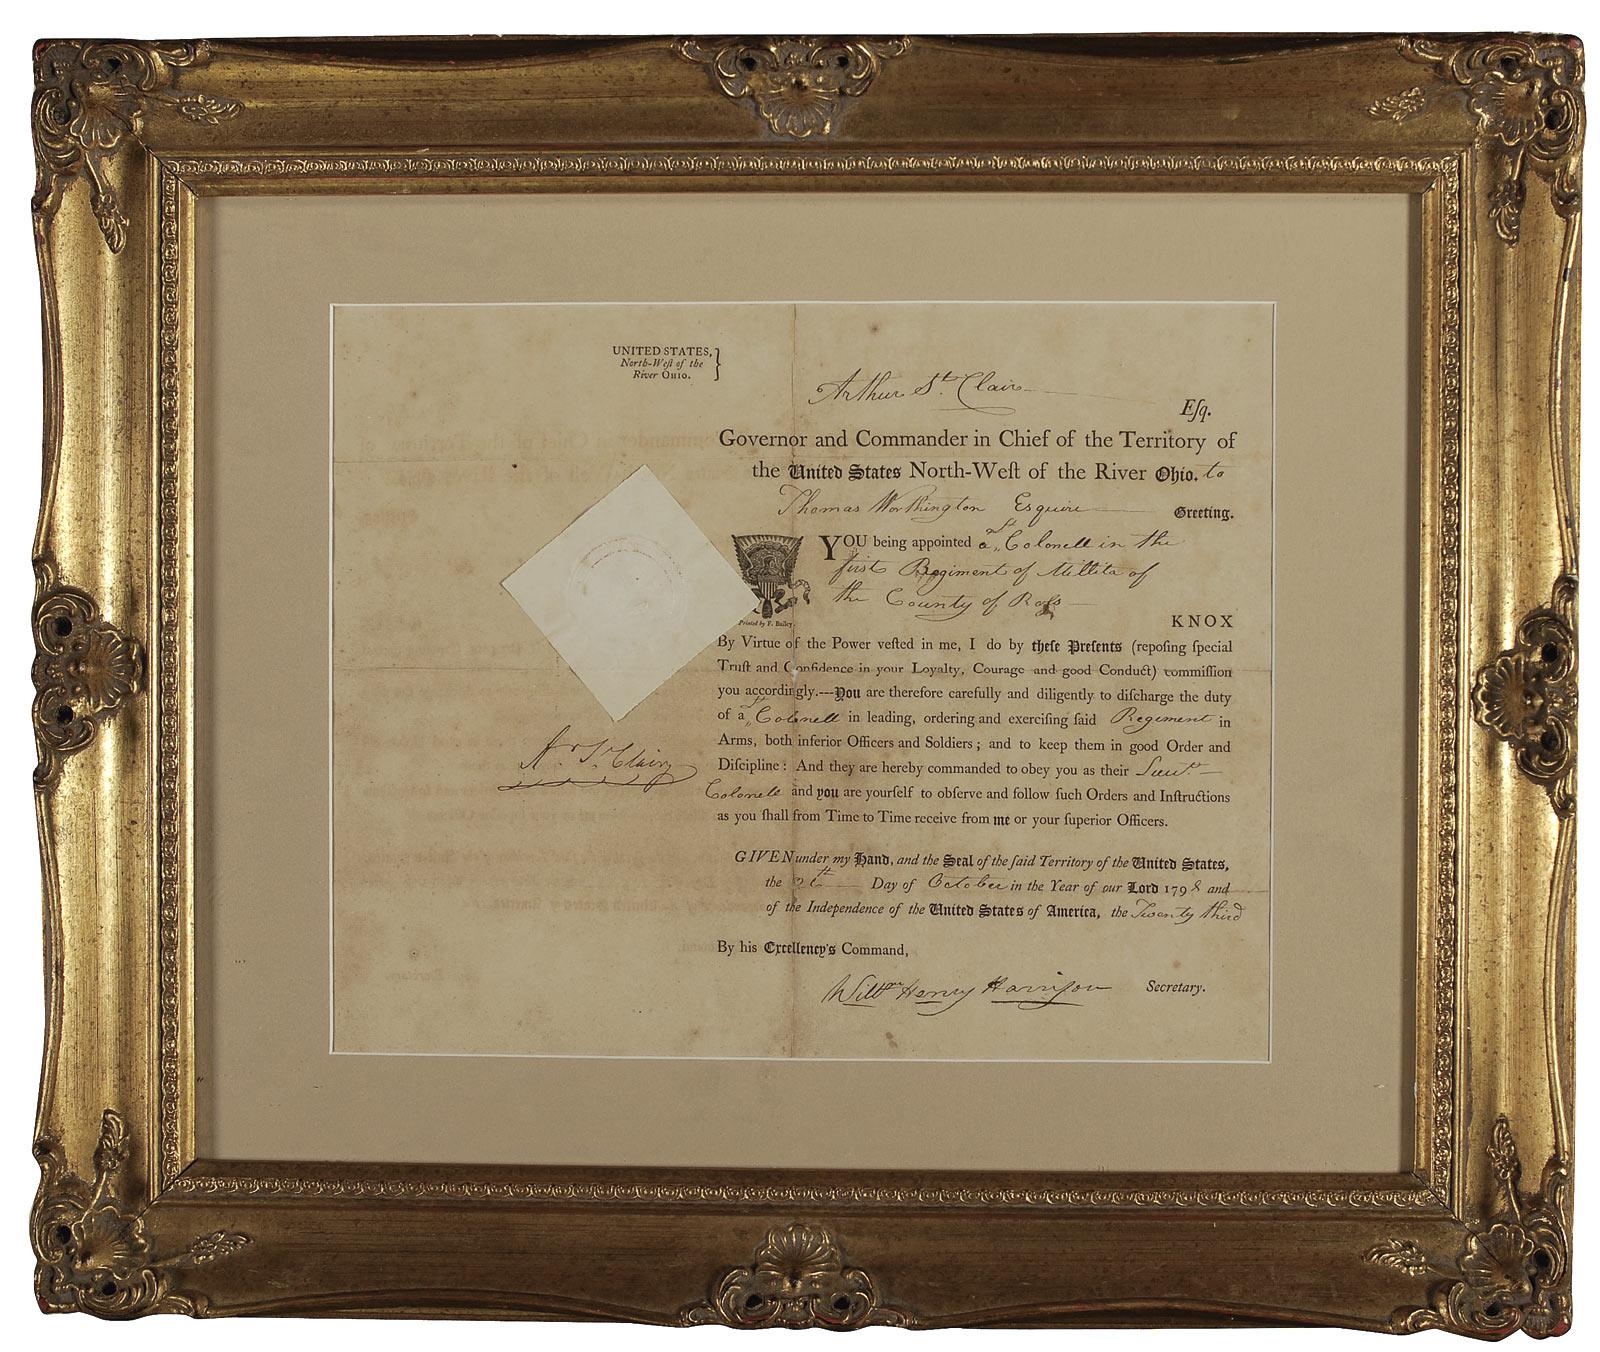 UNITED STATES,
North-Weſt of the
River OHIO. }
Arthur St. Clair Eſq.
Governor and Commander in Chief of the Territory of
the United States North-Weſt of the River Ohio. to
Thomas Worthington Esquire Greeting.
YOU being appointed a Lt Colonell in the
first Regiment of Millita of
the County of Roſs
KNOX
Printed by F. Bailey.
By Virtue of the Power veſted in me, I do by theſe Preſents (repoſing ſpecial
Truſt and Confidence in your Loyalty, Courage and good Conduct) commiſſion
you accordingly.---You are therefore carefully and diligently to diſcharge the duty
of a Lt Colonell in leading, ordering and exerciſing ſaid Regiment in
Arms, both inferior Officers and Soldiers; and to keep them in good Order and
Diſcipline: And they are hereby commanded to obey you as their Lieut.
Colonell and you are yourſelf to obſerve and follow ſuch Orders and Inſtructions
as you ſhall from Time to Time receive from me or your ſuperior Officers.
Ar. St. Clair
GIVEN under my Hand, and the Seal of the ſaid Territory of the United States,
the Day of October in the Year of our Lord 1798 and
of the Independence of the United States of America, the Twenty third
By his Excellency's Command,
Willm Henry Harriſon Secretary.